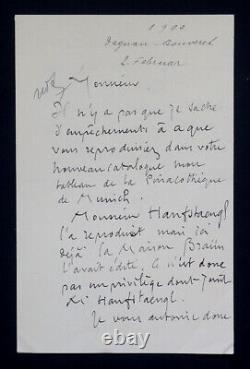 1900
Dagnan-Bouveret
2. Februar
Monsieur
Il n'y a pas que je sache
d'empêchements à ce que
vous reproduisiez dans votre
nouveau catalogue mon
tableau de la Pinacothèque
de Munich.
Monsieur Hanfstaengl
l'a reproduit mais ici
déjà la Maison Braun
l'avait édité. Ce n'est donc
pas un privilège dont jouit
Hanfstaengl.
Je vous autorise donc